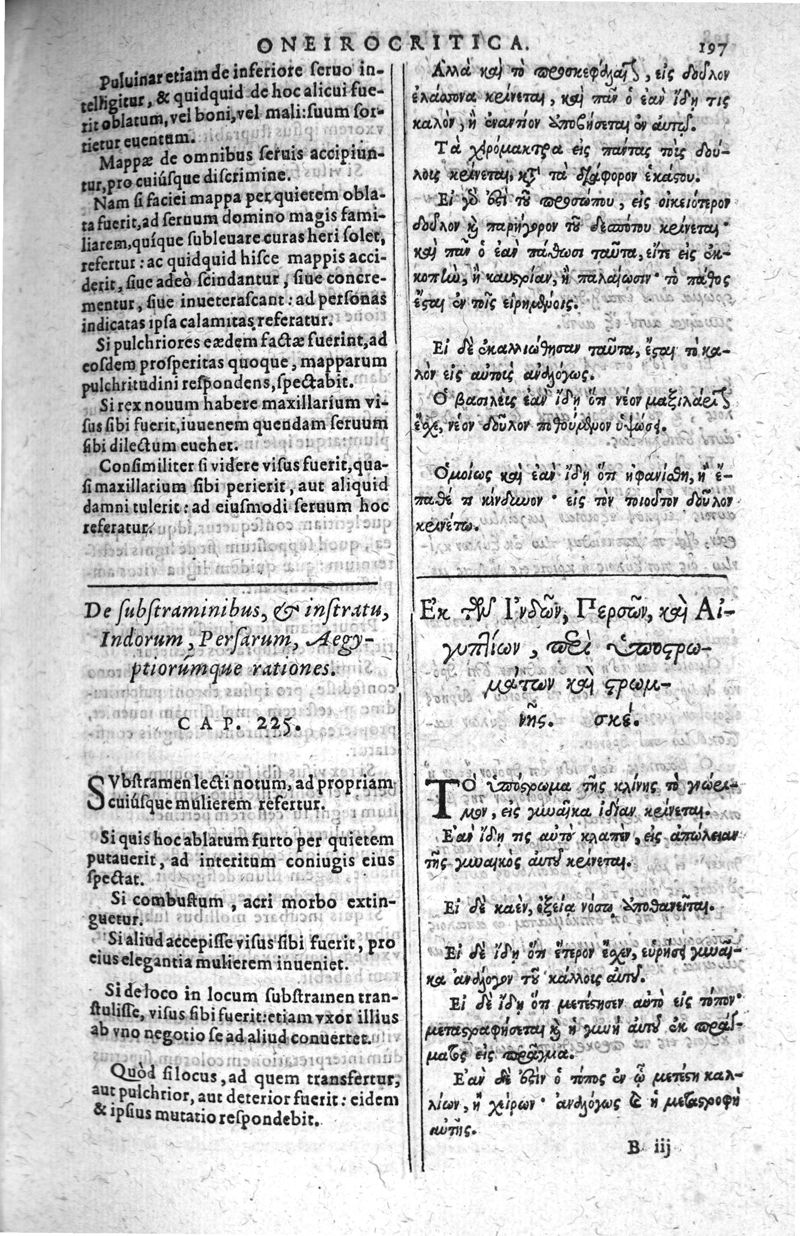 ONEIROCRITICA. 197
Puluinar etiam de inferiore seruo in-
telligitur, & quidquid de hoc alicui fue-
rit oblatum, vel boni, vel mali: suum sor-
tietur euentum.
Mappæ de omnibus seruis accipiun-
tur, pro cuiúsque discrimine.
Nam si faciei mappa per quietem obla-
ta fuerit, ad seruum domino magis fami-
liarem, quísque subleuare curas heri solet,
refertur: ac quidquid hisce mappis acci-
derit, siue adeò scindantur, siue concre-
mentur, siue inueterascant: ad personas
indicatas ipsa calamitas referatur.
Si pulchriores eædem factæ fuerint, ad
eosdem prosperitas quoque, mapparum
pulchritudini respondens, spectabit.
Si rex nouum habere maxillarium vi-
sus sibi fuerit, iuuenem quendam seruum
sibi dilectum euehet.
Consimiliter si videre visus fuerit, qua-
si maxillarium sibi perierit, aut aliquid
damni tulerit: ad eiusmodi seruum hoc
referatur.
De substraminibus, & instratu,
Indorum, Persarum, Aegy-
ptiorúmque rationes.
CAP. 225.
SVbstramen lecti notum, ad propriam
cuiúsque mulierem refertur.
Si quis hoc ablatum furto per quietem
putauerit, ad interitum coniugis eius
spectat.
Si combustum, acri morbo extin-
guetur.
Si aliud accepisse visus sibi fuerit, pro
eius elegantia mulierem inueniet.
Si de loco in locum substramen tran-
stulisse, visus sibi fuerit: etiam vxor illius
ab vno negotio se ad aliud conuertet.
Quòd si locus, ad quem transfertur,
aut pulchrior, aut deterior fuerit: eidem
& ipsius mutatio respondebit.
Ἀλλὰ καὶ τὸ προσκεφάλαιον, εἰς δοῦλον
ἐλάσσονα κρίνεται, καὶ πᾶν ὃ ἐὰν ἴδῃ τις
καλὸν, ἢ ἐναντίον ἀποβήσεται ἐν αὐτῷ.
Τὰ χειρόμακτρα εἰς πάντας τοὺς δού-
λους κρίνεται, κατὰ τὸ διάφορον ἑκάστου.
Εἰ γὰρ ἐστὶ τοῦ προσώπου, εἰς οἰκειότερον
δοῦλον καὶ παρήγορον τοῦ δεσπότου κρίνεται·
καὶ πᾶν ὃ ἐὰν πάθωσι ταῦτα, εἴτε εἰς ἐκ-
κοπὴν, ἢ καυστρίαν, ἢ παλαίωσιν· τὸ πάθος
ἔσται ἐν τοῖς εἰρημένοις.
Εἰ δὲ ἐκαλλιώθησαν ταῦτα, ἔσται τὸ κα-
λὸν εἰς αὐτοὺς ἀναλόγως.
Ὁ βασιλεὺς ἐὰν ἴδῃ ὅτι νέον μαξιλάριον
ἔχει, νέον δοῦλον ποθούμενον ὑψώσει.
Ὁμοίως καὶ ἐὰν ἴδῃ ὅτι ἠφανίσθη, ἢ ἔ-
παθέ τι κίνδυνον· εἰς τὸν τοιοῦτον δοῦλον
κρινέτω.
Ἐκ τῶν Ἰνδῶν, Περσῶν, καὶ Αἰ-
γυπτίων, περὶ ὑποστρω-
μάτων καὶ στρωμ-
νῆς. σκέ.
Τὸ ὑπόστρωμα τῆς κλίνης τὸ γνώρι-
μον, εἰς γυναῖκα ἰδίαν κρίνεται.
Ἐὰν ἴδῃ τις αὐτὸ κλαπὲν, εἰς ἀπώλειαν
τῆς γυναικὸς αὐτοῦ κρίνεται.
Εἰ δὲ καὲν, ὀξείᾳ νόσῳ ἀποθανεῖται.
Εἰ δὲ ἴδῃ ὅτι ἕτερον ἔσχεν, εὑρήσει γυναῖ-
κα ἀνάλογον τοῦ κάλλους αὐτοῦ.
Εἰ δὲ ἴδῃ ὅτι μετέστησεν αὐτὸ εἰς τόπον·
μεταστραφήσεται καὶ ἡ γυνὴ αὐτοῦ ἐκ πράγ-
ματος εἰς πρᾶγμα.
Ἐὰν δέ ἐστιν ὁ τόπος ἐν ᾧ μετέστη καλ-
λίων, ἢ χείρων· ἀναλόγως καὶ ἡ μεταστροφὴ
αὐτῆς.
B iij